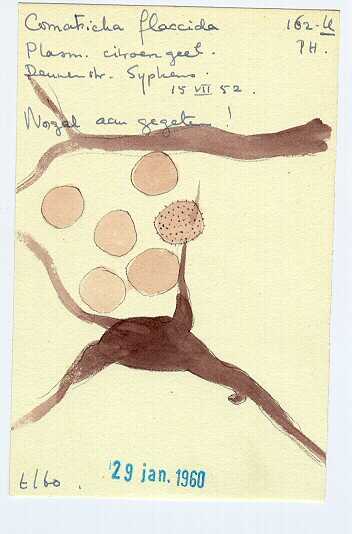 Comatricha flaccida 162-U
Plasm. citroengeel. PH.
Dennenstr. Syphens.
15 VII 52.
Nogal aangegeten!
t/60.
29 jan. 1960